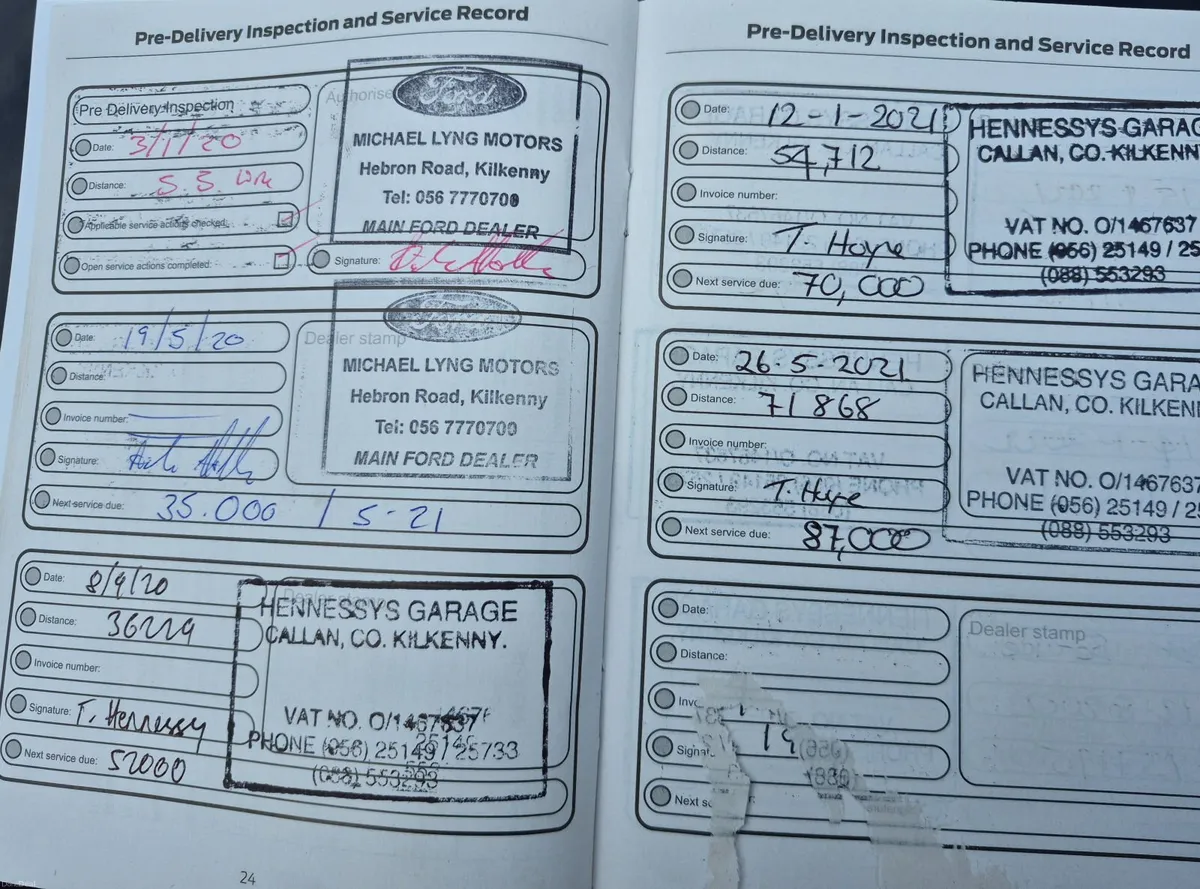 Pre-Delivery Inspection and Service Record
Pre Delivery Inspection
Authorise
Ford
MICHAEL LYNG MOTORS
Hebron Road, Kilkenny
Tel: 056 7770700
MAIN FORD DEALER
Date: 3/1/20
Distance: 5.5
Applicable service actions checked:
Open service actions completed:
Signature:
Date: 19/5/20
Distance:
Invoice number:
Signature:
Next service due: 35.000 / 5-21
Dealer stamp
Ford
MICHAEL LYNG MOTORS
Hebron Road, Kilkenny
Tel: 056 7770700
MAIN FORD DEALER
Date: 8/9/20
Distance: 36229
Invoice number:
Signature: T. Hennessy
Next service due: 52000
Dealer stamp
HENNESSYS GARAGE
CALLAN, CO. KILKENNY.
VAT NO. O/1467637
PHONE (056) 25149 / 25733
(088) 553293
24
Pre-Delivery Inspection and Service Record
Date: 12-1-2021
Distance: 54,712
Invoice number:
Signature: T. Hoye
Next service due: 70,000
HENNESSYS GARAG
CALLAN, CO. KILKENN
VAT NO. O/1467637
PHONE (056) 25149 / 25
(088) 553293
Date: 26-5-2021
Distance: 71868
Invoice number:
Signature: T. Hoye
Next service due: 87,000
HENNESSYS GARA
CALLAN, CO. KILKEN
VAT NO. O/1467637
PHONE (056) 25149 / 2
(088) 553293
Date:
Distance:
Inv
Signat
Next se
Dealer stamp